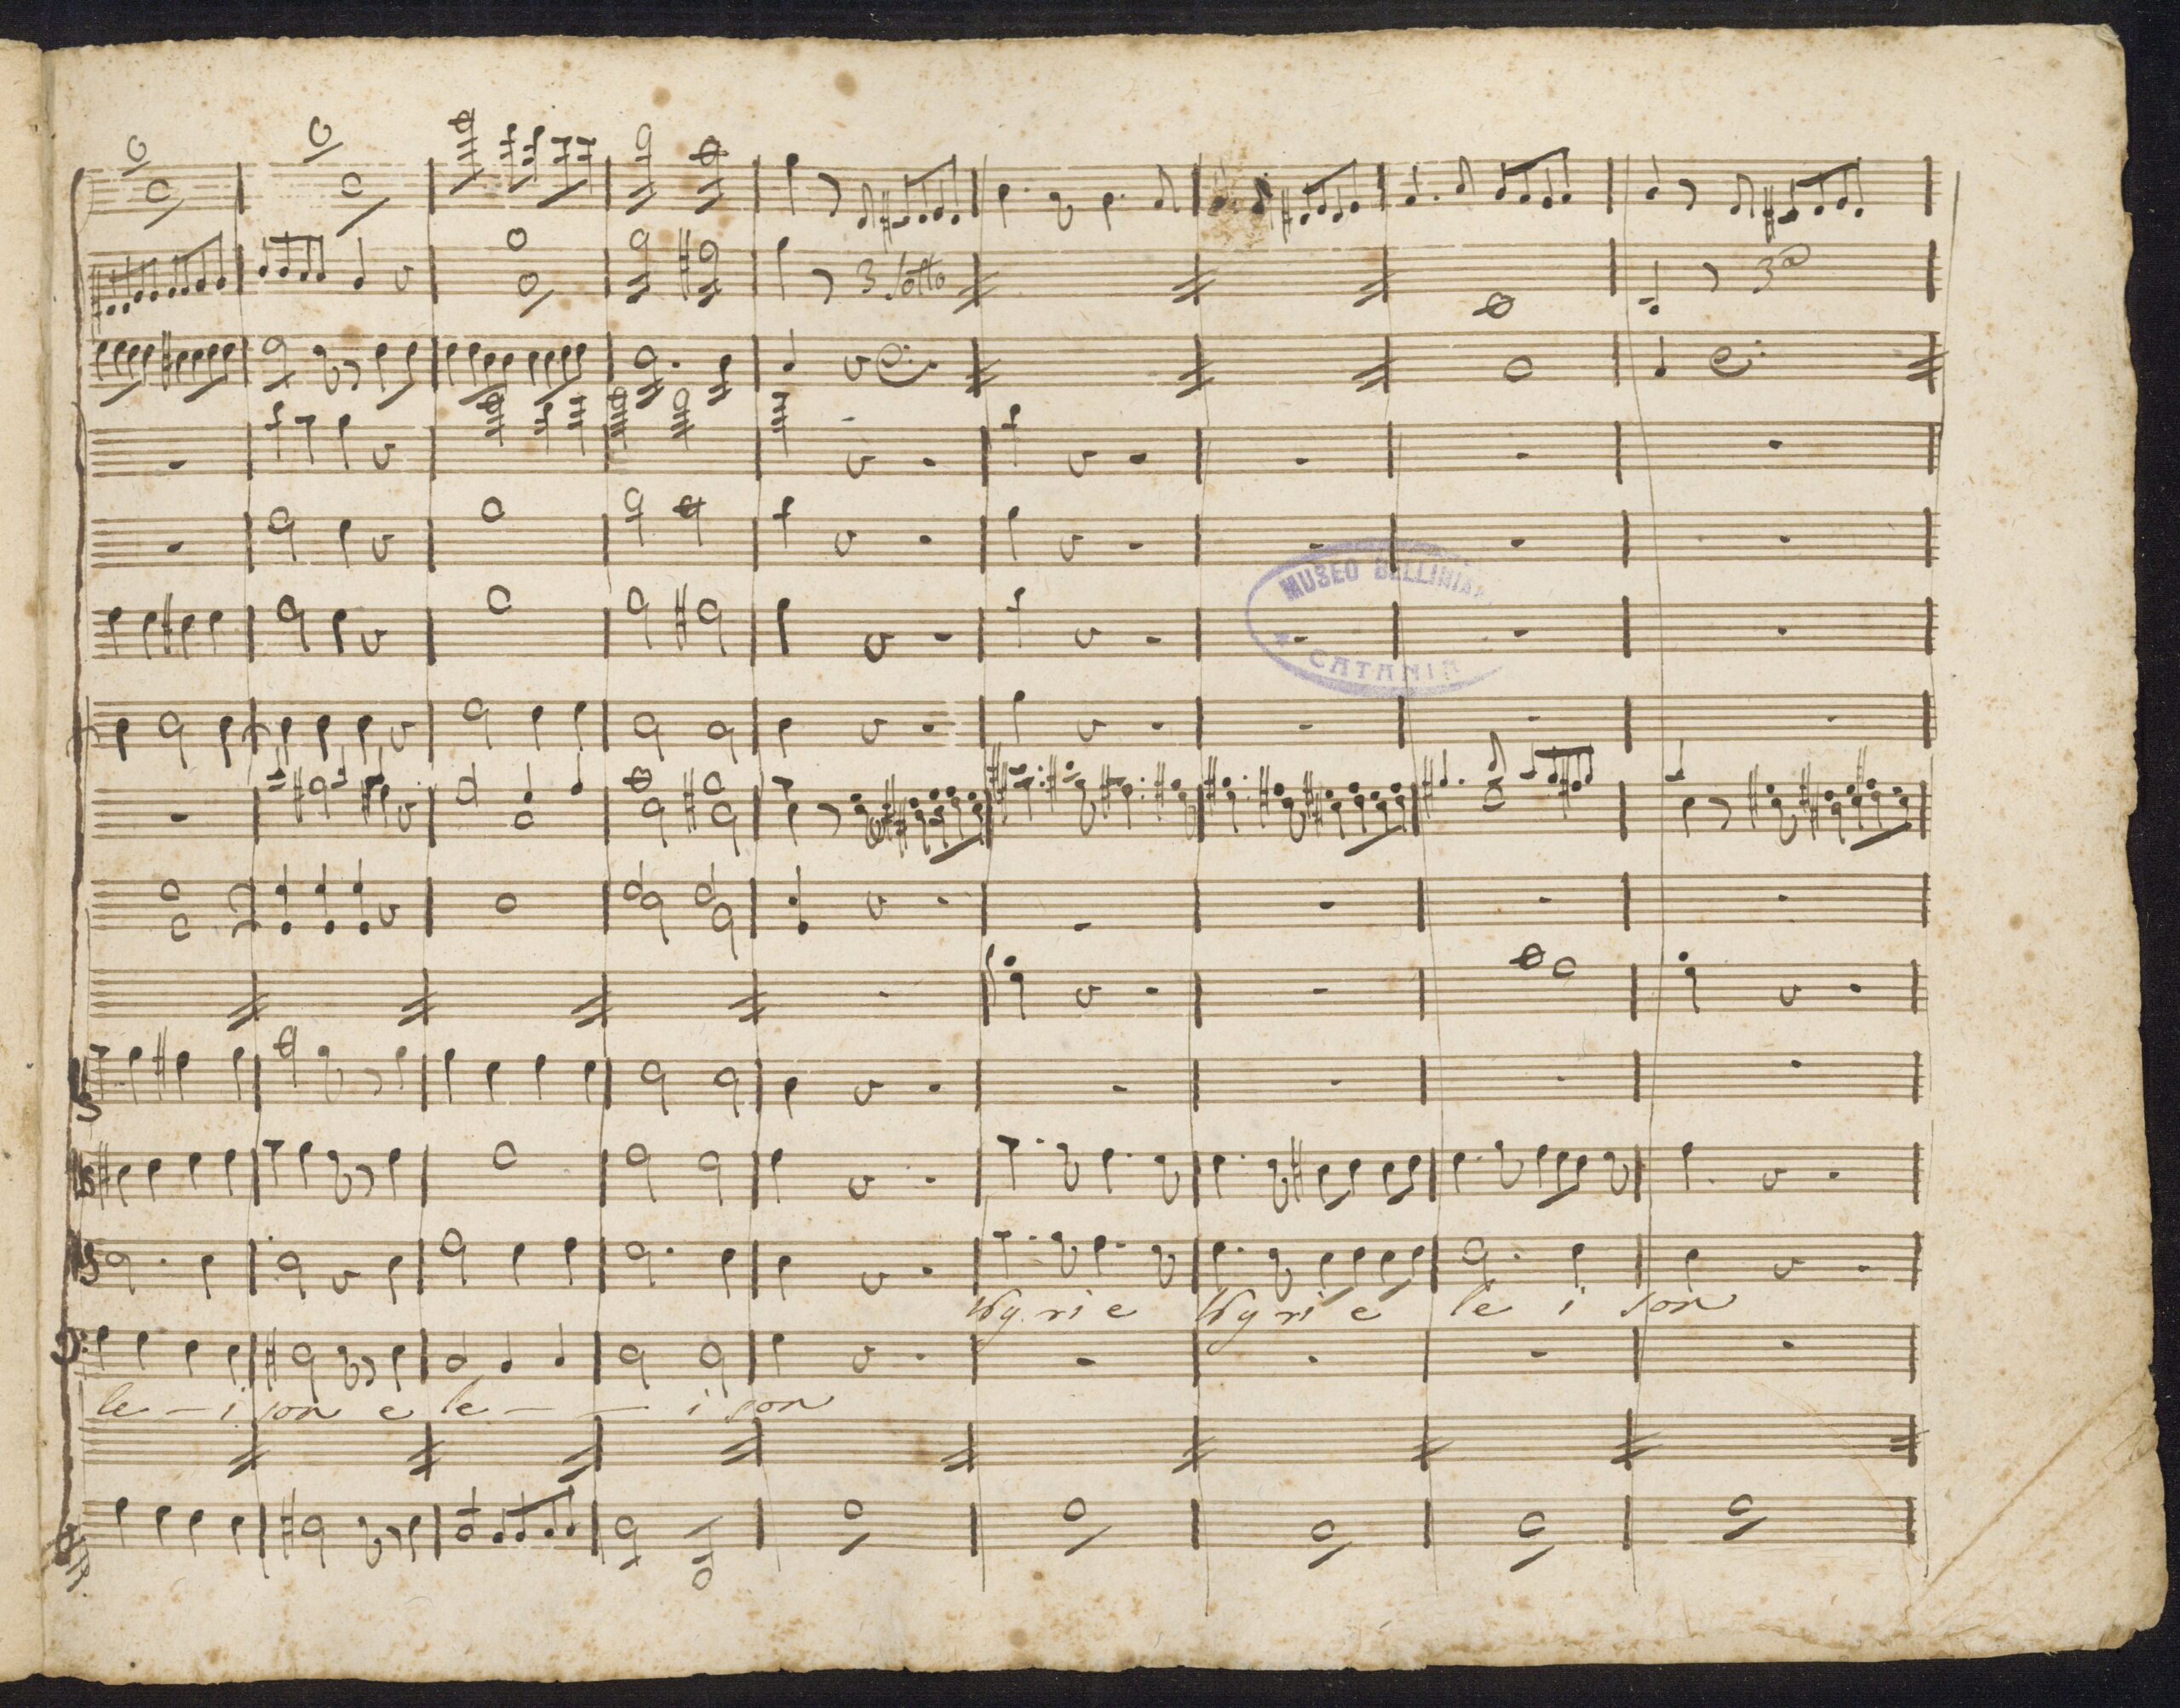 3 sotto
3a
MUSEO BELLINIA
CATANIA
Kyrie Kyrie le i son
le - i son e le - - i son